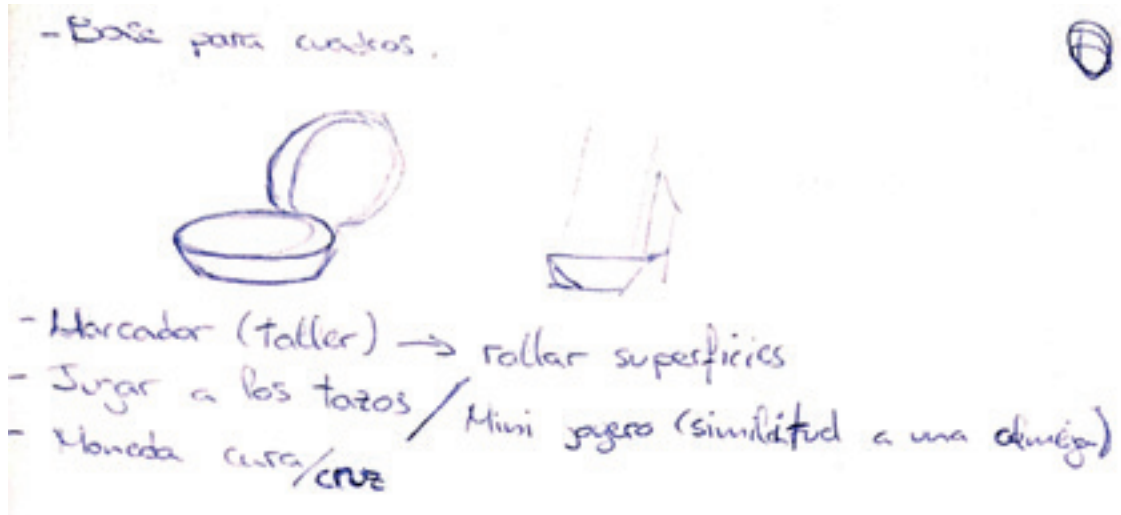 - Base para cuadros.
- Marcador (taller) → rallar superficies
- Jugar a los tazos / Mini joyero (similitud a una almeja)
- Moneda cara/cruz